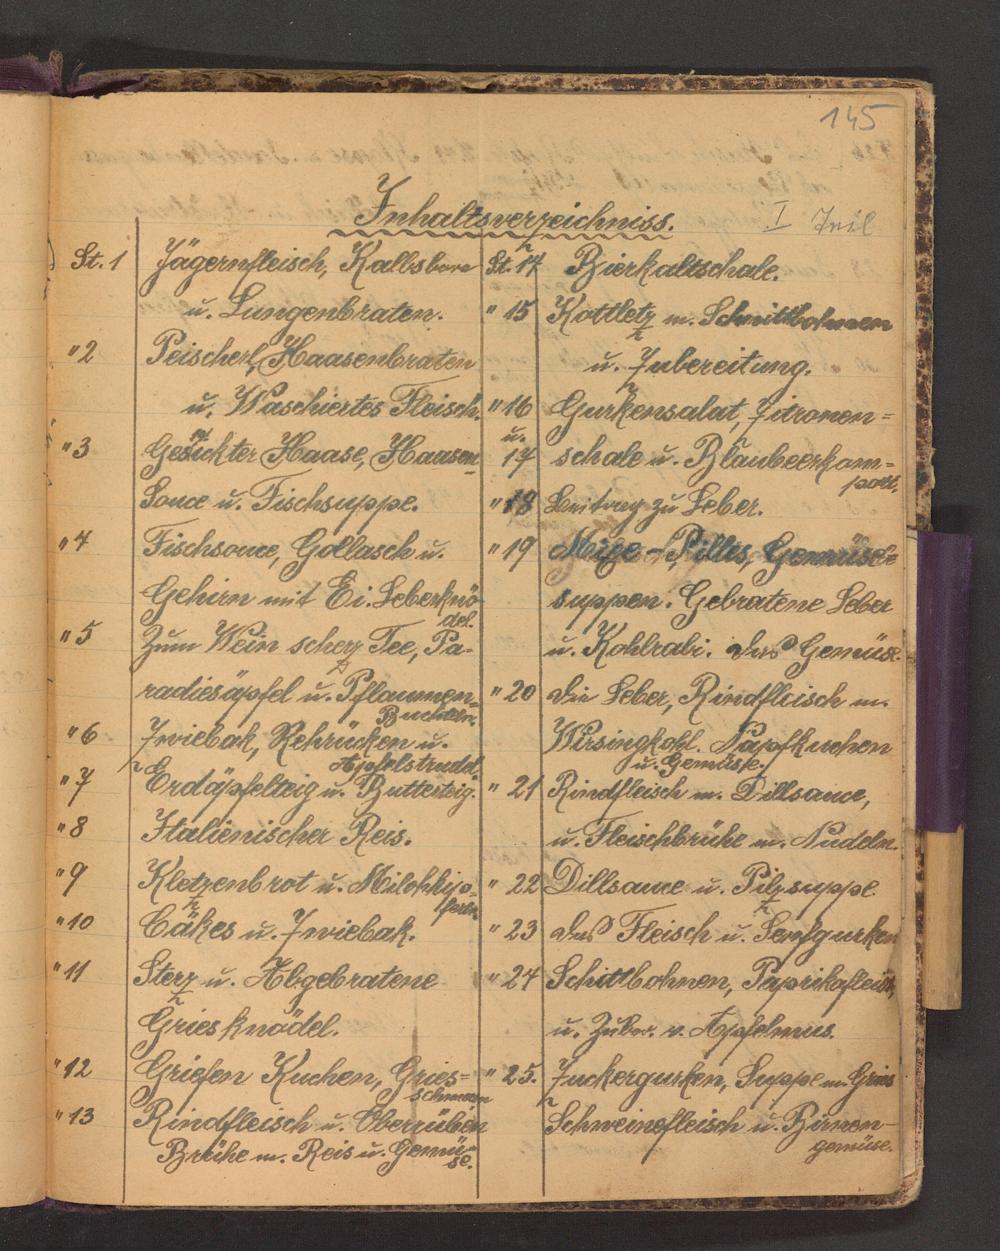 145
Inhaltsverzeichniss. I Teil
St. 1 Jägernfleisch, Kalbsbore
u. Lungenbraten.
" 2 Peischerl, Haasenbraten
u. Waschiertes Fleisch.
" 3 Gesickter Haase, Haasen-
Souce u. Fischsuppe.
" 4 Fischsouce, Gollasch u.
Gehirn mit Ei. Leberknö-
del.
" 5 Zum Wein scherz Tee, Pa-
radiesäpfel u. Pflaumen-
Buchteln.
" 6 Zwiebak, Rehrücken u.
Apfelstrudel.
" 7 Erdäpfelteig u. Butterteig.
" 8 Italienischer Reis.
" 9 Kletzenbrot u. Milchkip-
ferln
" 10 Cäkes u. Zwiebak.
" 11 Sterz u. Abgebratene
Griesknödel.
" 12 Griefen Kuchen, Gries-
schmarn
" 13 Rindfleisch u. Oberrüben
Brühe m. Reis u. Gemü-
se.
St. 14 Bierkaltschale.
" 15 Kottletz m. Schnittbohnen
u. Zubereitung.
" 16 Gurkensalat, Zitronen=
u.
17 schale u. Blaubeerkom=
pott.
" 18 Beitrag zu Leber.
" 19 Mize-Pilles, Gemüse=
suppen. Gebratene Leber
u. Kohlrabi. das Gemüse.
" 20 die Leber, Rindfleisch m.
Wirsingkohl. Napfkuchen
u. Gemüse.
" 21 Rindfleisch m. Dillsauce,
u. Fleischbrühe m. Nudeln.
" 22 Dillsauce u. Pilzsuppe.
" 23 das Fleisch u. Senfgurken
" 24 Schittbohnen, Paprikafleisch,
u. Zuber. v. Apfelmus.
" 25. Zuckergurken, Suppe m. Gries
Schweinefleisch u. Birnen-
gemüse.